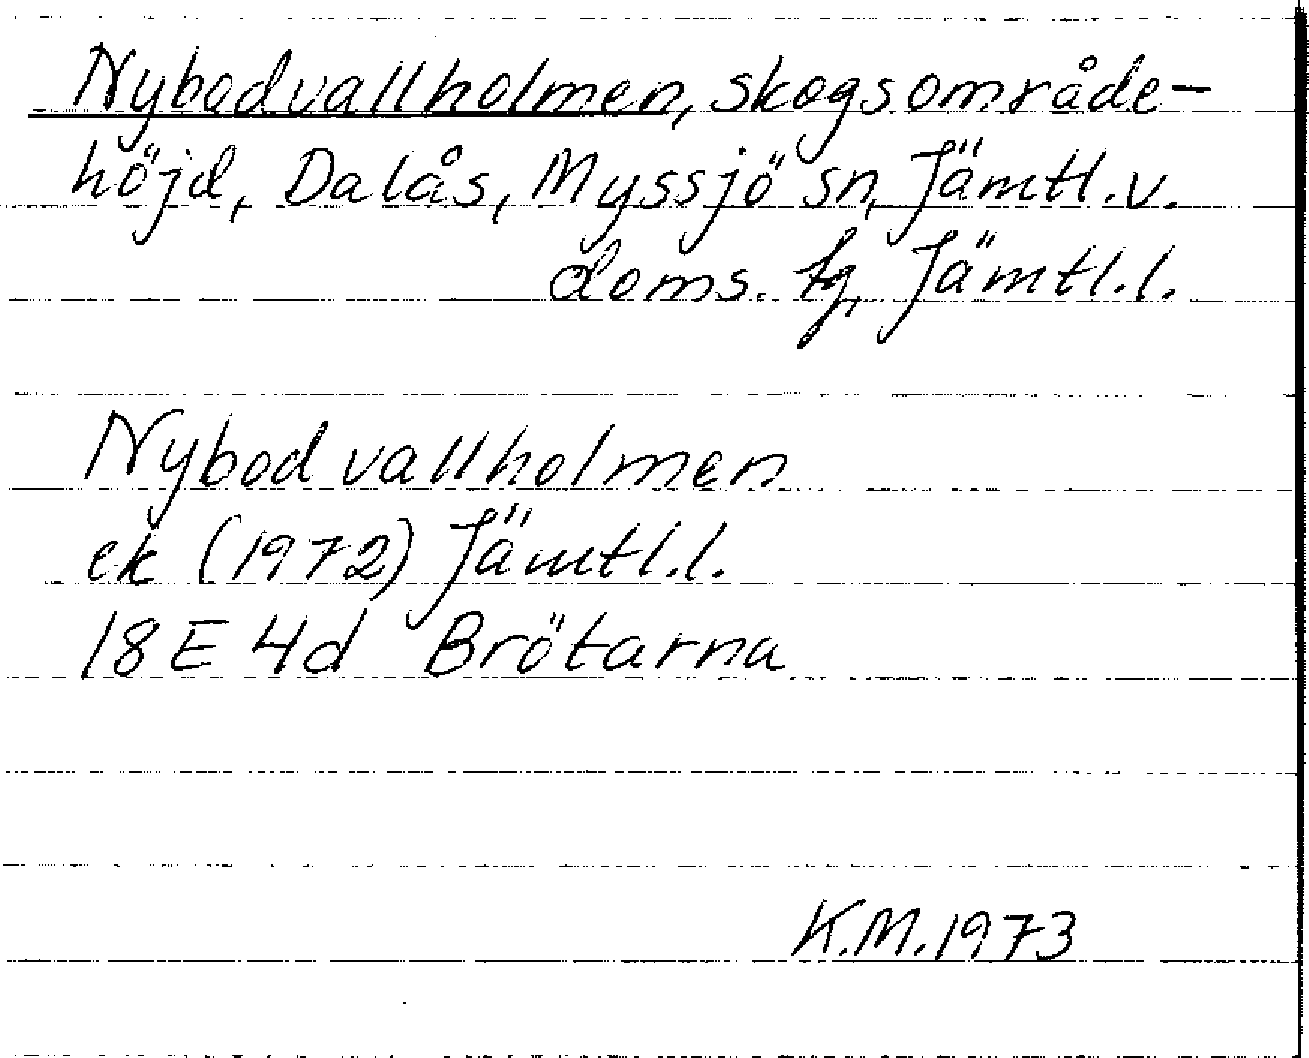 Nybodvallholmen, skogsområde-
höjd, Dalås, Myssjö sn, Jämtl.v.
doms. tg, Jämtl.l.
Nybodvallholmen
ek (1972) Jämtl.l.
18E 4d Brötarna
K.M.1973